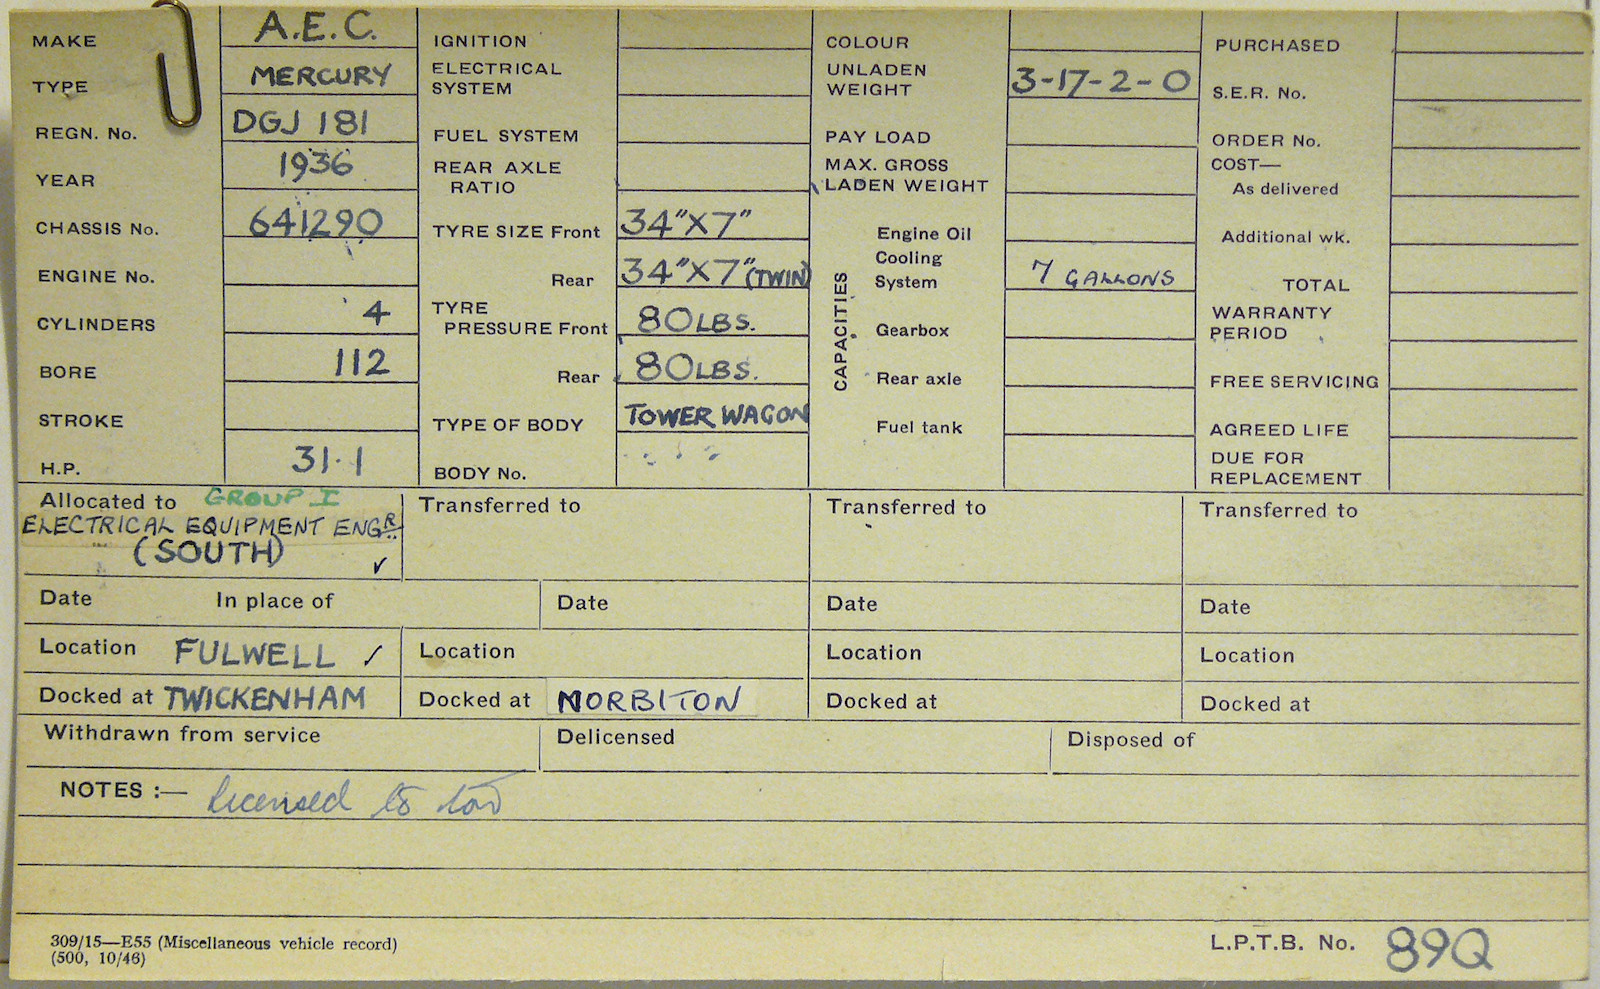 MAKE A.E.C.
TYPE MERCURY
REGN. No. DGJ 181
YEAR 1936
CHASSIS No. 641290
ENGINE No.
CYLINDERS 4
BORE 112
STROKE
H.P. 31·1
IGNITION
ELECTRICAL
SYSTEM
FUEL SYSTEM
REAR AXLE
RATIO
TYRE SIZE Front 34"X7"
Rear 34"X7" (TWIN)
TYRE
PRESSURE Front 80LBS.
Rear 80LBS.
TYPE OF BODY TOWER WAGON
BODY No.
COLOUR
UNLADEN
WEIGHT 3-17-2-0
PAY LOAD
MAX. GROSS
LADEN WEIGHT
CAPACITIES
Engine Oil
Cooling
System 7 GALLONS
Gearbox
Rear axle
Fuel tank
PURCHASED
S.E.R. No.
ORDER No.
COST—
As delivered
Additional wk.
TOTAL
WARRANTY
PERIOD
FREE SERVICING
AGREED LIFE
DUE FOR
REPLACEMENT
Allocated to GROUP I
ELECTRICAL EQUIPMENT ENGR.
(SOUTH) ✓
Transferred to
Transferred to
Transferred to
Date In place of
Date
Date
Date
Location FULWELL ✓
Location
Location
Location
Docked at TWICKENHAM
Docked at NORBITON
Docked at
Docked at
Withdrawn from service
Delicensed
Disposed of
NOTES :— Licensed to tow
309/15—E55 (Miscellaneous vehicle record)
(500, 10/46)
L.P.T.B. No. 89Q